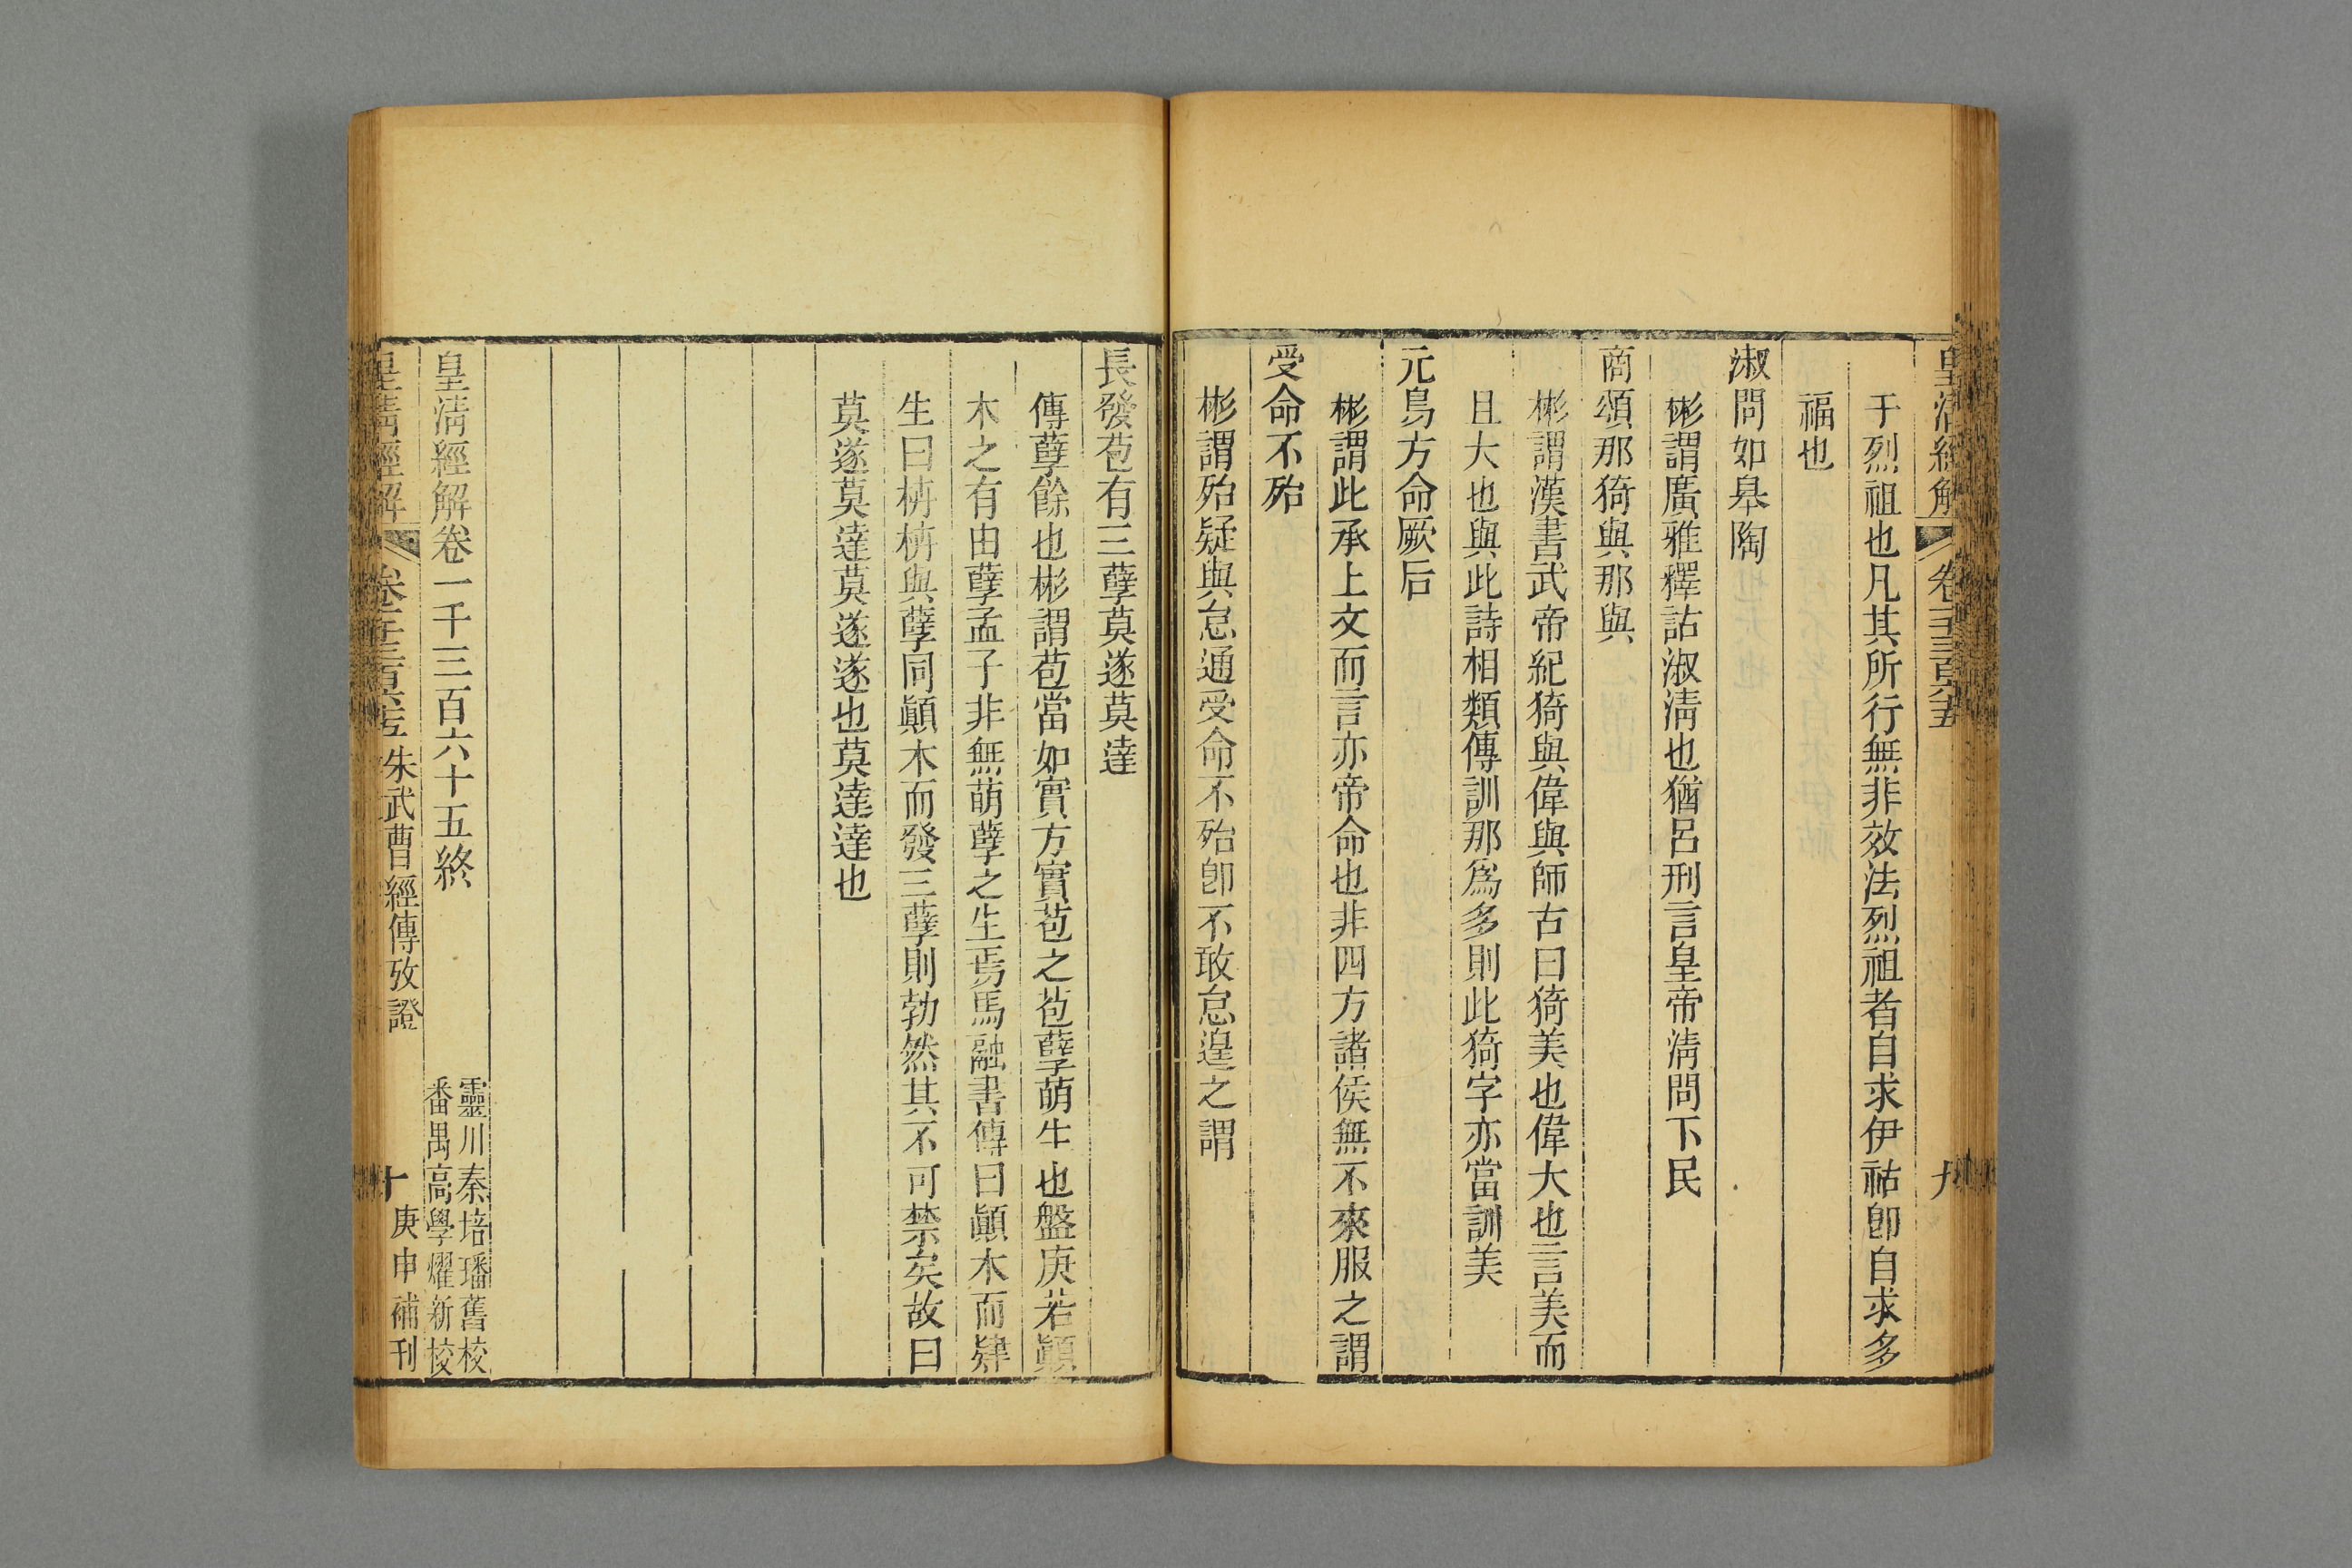 皇清經解 卷一千三百六十五 九
于烈祖也凡其所行無非效法烈祖者自求伊祜卽自求多
福也
淑問如皋陶
彬謂廣雅釋詁淑淸也猶呂刑言皇帝淸問下民
商頌那猗與那與
彬謂漢書武帝紀猗與偉與師古曰猗美也偉大也言美而
且大也與此詩相類傳訓那爲多則此猗字亦當訓美
元鳥方命厥后
彬謂此承上文而言亦帝命也非四方諸侯無不來服之謂
受命不殆
彬謂殆疑與怠通受命不殆卽不敢怠遑之謂
長發苞有三孽莫遂莫達
傳孽餘也彬謂苞當如實方實苞之苞孽萌生也盤庚若顚
木之有由孽孟子非無萌孽之生焉馬融書傳曰顚木而肄
生曰枿枿與孽同顚木而發三孽則勃然其不可禁矣故曰
莫遂莫達莫遂遂也莫達達也
皇淸經解卷一千三百六十五終
靈川秦培璠舊校
番禺高學燿新校
皇清經解 卷一千三百六十五 朱武曹經傳攷證 十 庚申補刊